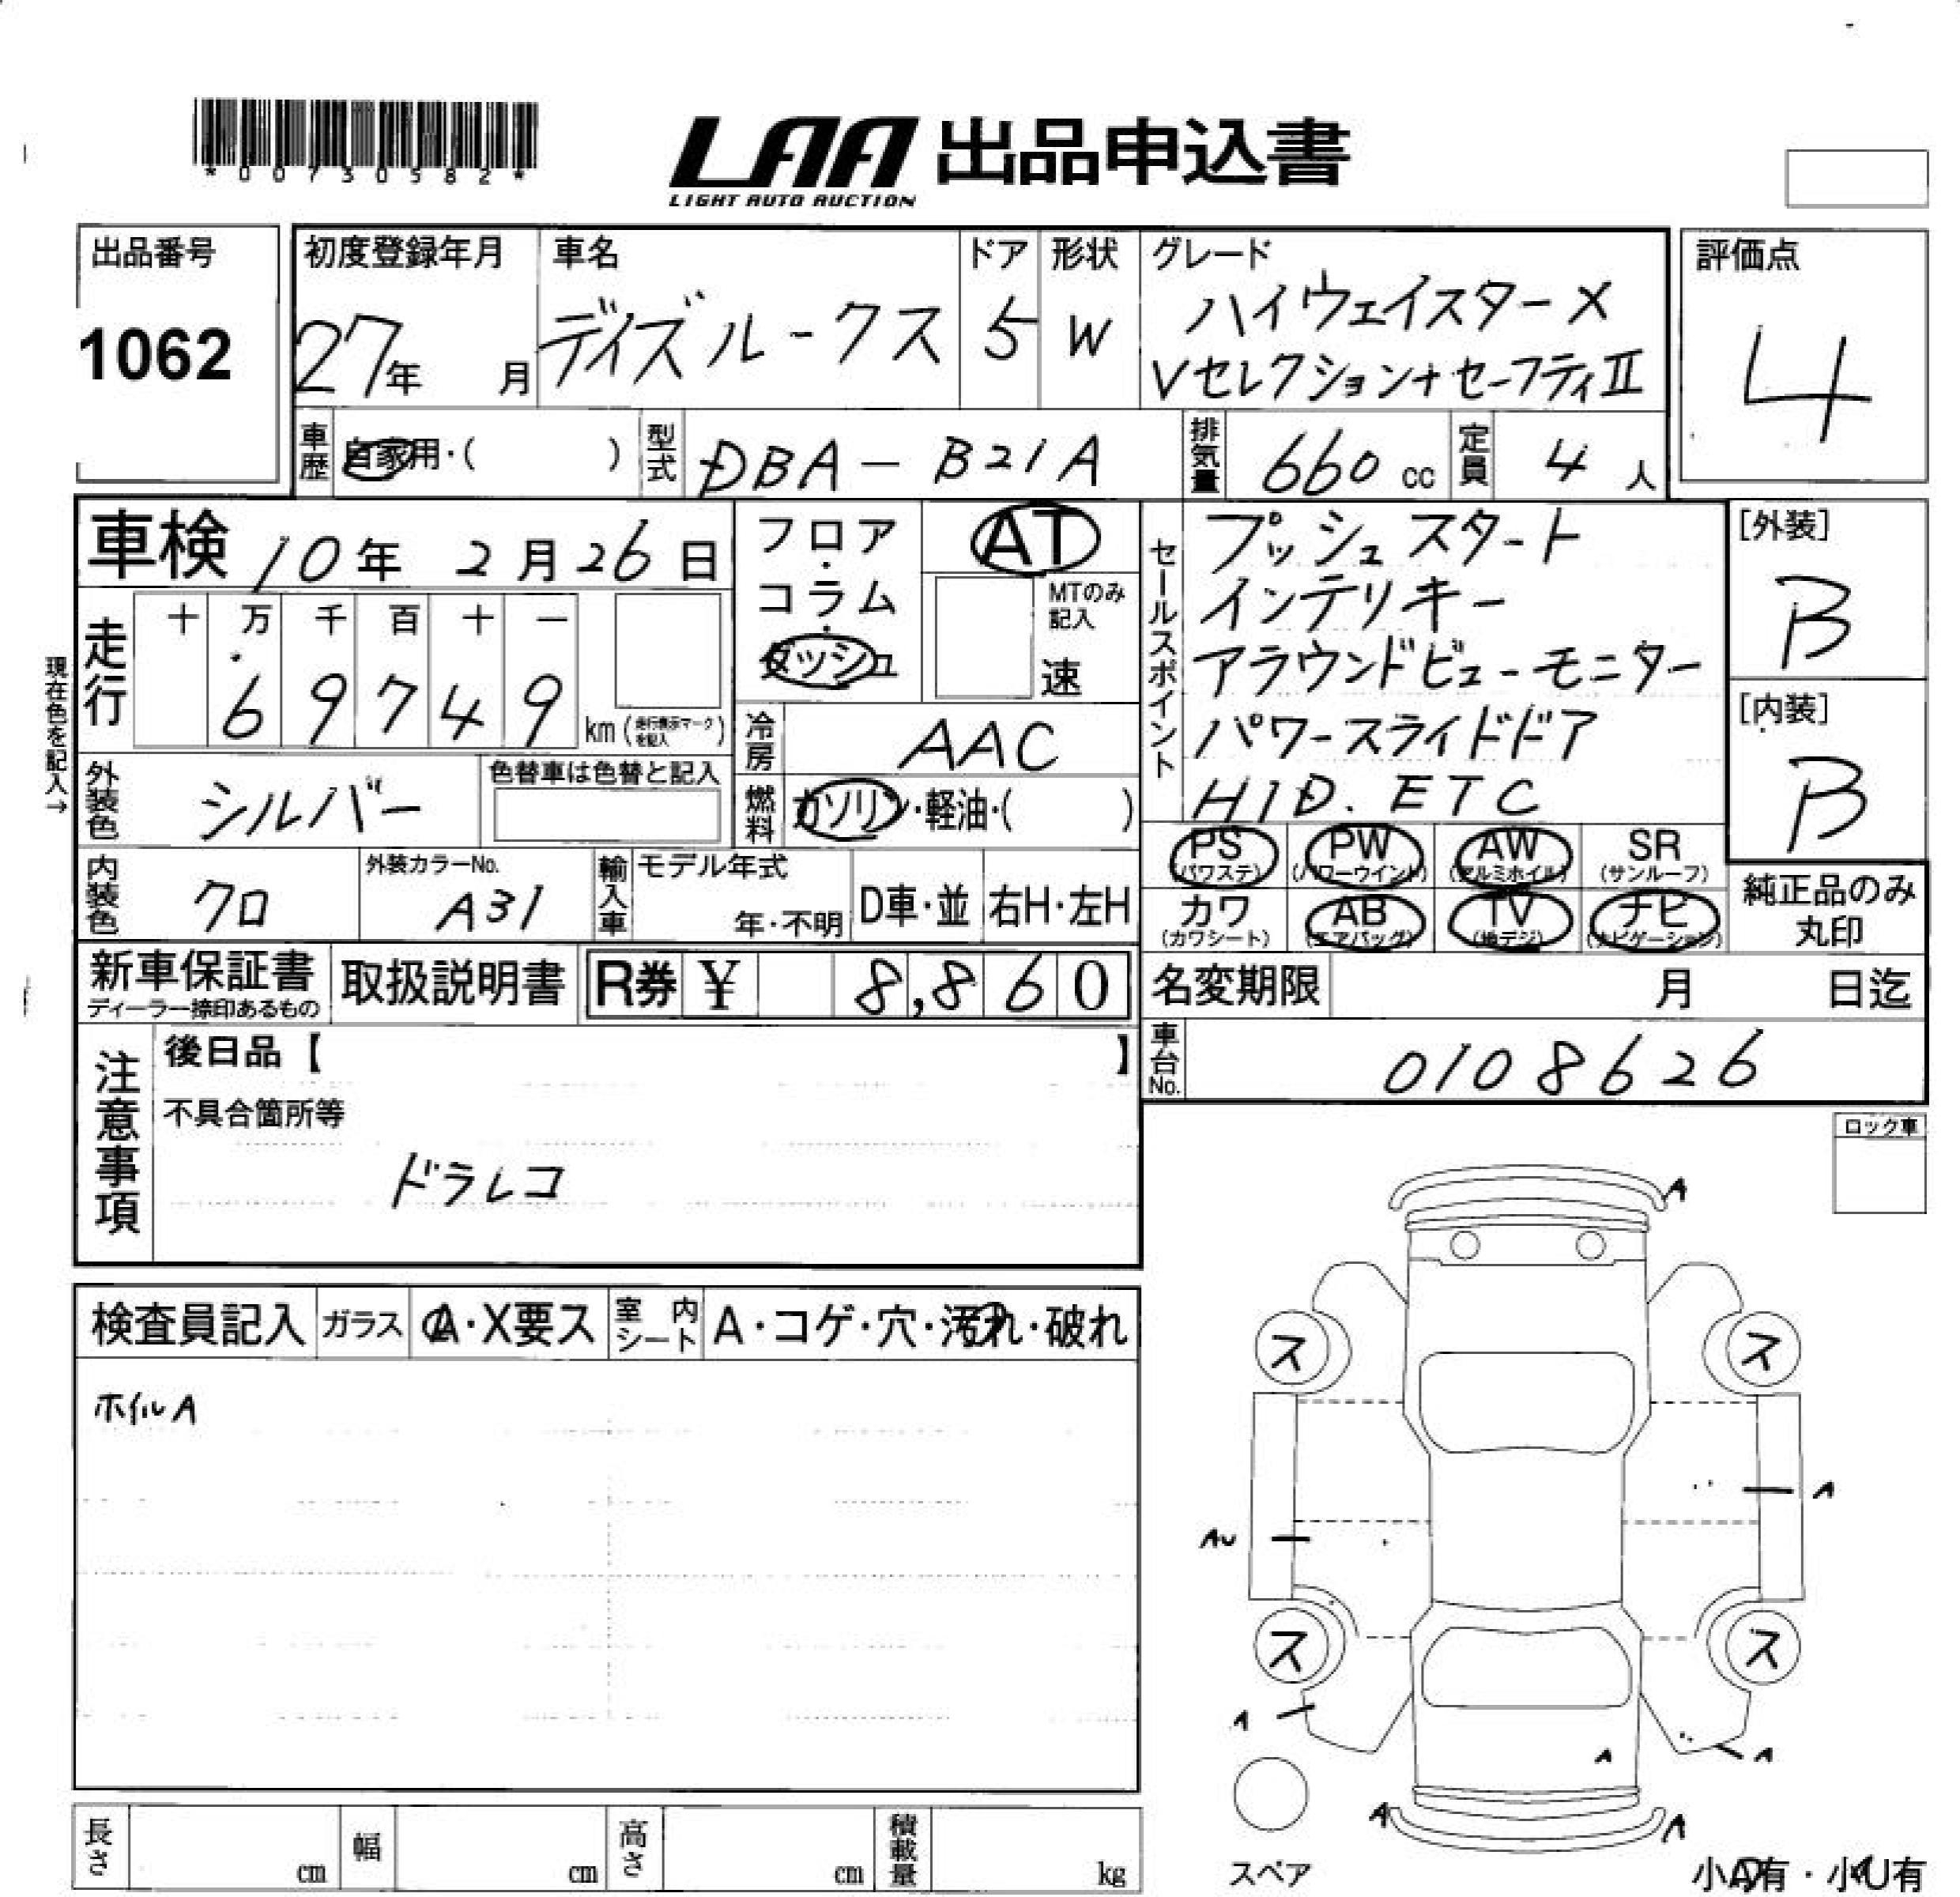 *00730582*
LAA 出品申込書
LIGHT AUTO AUCTION
出品番号
1062
初度登録年月
27年 月
車名
デイズルークス
ドア
5
形状
W
グレード
ハイウェイスターX
Vセレクション+セーフティⅡ
評価点
4
車歴
自家用・( )
型式
DBA-B21A
排気量
660cc
定員
4人
車検 10年 2月26日
フロア・コラム・ダッシュ
AT
MTのみ記入
速
セールスポイント
プッシュスタート
インテリキー
アラウンドビューモニター
パワースライドドア
HID. ETC
[外装]
B
[内装]
B
現在色を記入→
走行
十 万 千 百 十 一
6 9 7 4 9 km(走行表示マークを記入)
冷房
AAC
外装色
シルバー
色替車は色替と記入
燃料
ガソリン・軽油・( )
PS (パワステ)
PW (パワーウインド)
AW (アルミホイル)
SR (サンルーフ)
カワ (カワシート)
AB (エアバッグ)
TV (地デジ)
ナビ (ナビゲーション)
純正品のみ丸印
内装色
クロ
外装カラーNo.
A31
輸入車
モデル年式
年・不明
D車・並
右H・左H
新車保証書
ディーラー捺印あるもの
取扱説明書
R券 ¥ 8,860
名変期限 月 日迄
車台No.
0108626
注意事項
後日品【 】
不具合箇所等
ドラレコ
ロック車
検査員記入
ガラス
A・X要ス
室内シート
A・コゲ・穴・汚れ・破れ
ホイルA
A
ス ス
A
AU
ス ス
A
A
A
A A
スペア
小A有・小U有
長さ cm
幅 cm
高さ cm
積載量 kg